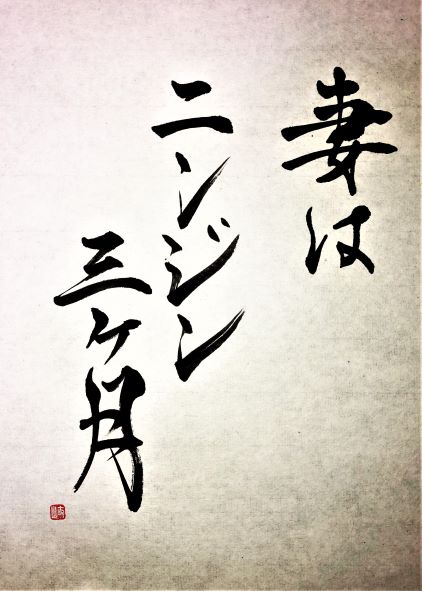 妻は
ニンジン
三ケ月